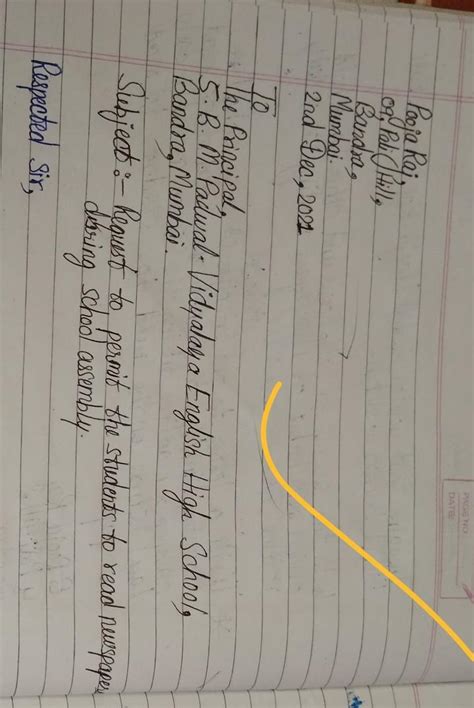 PAGE NO.
DATE:
Pooja Raj,
Pali Hill,
Bandra,
Mumbai.
2nd Dec, 2021
To
The Principal,
S. B. M. Padwal Vidyalaya English High School,
Bandra, Mumbai.
Subject :- Request to permit the students to read newspaper
during school assembly.
Respected Sir,